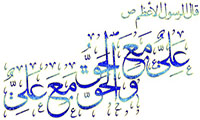 قال الرسول الأعظم ص
عَلِيٌّ مَعَ الْحَقِّ
وَالْحَقُّ مَعَ عَلِيٍّ